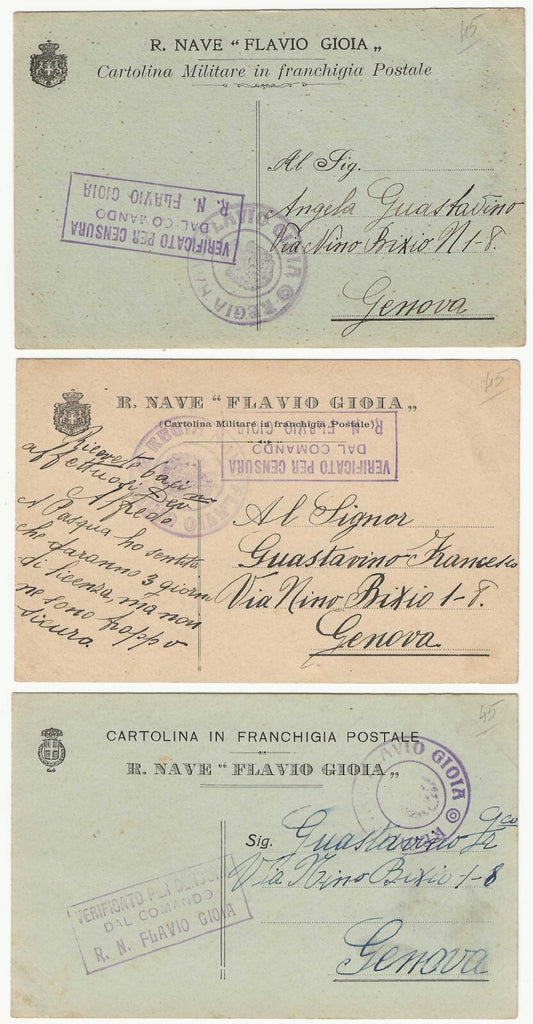 45
R. NAVE “ FLAVIO GIOIA „
Cartolina Militare in franchigia Postale
Al Sig.
Angela Guastavino
Via Nino Bixio N 1-8.
Genova
VERIFICATO PER CENSURA
DAL COMANDO
R. N. FLAVIO GIOIA
FLAVIO GIOIA
REGIA
45
R. NAVE “ FLAVIO GIOIA „
(Cartolina Militare in franchigia Postale)
VERIFICATO PER CENSURA
DAL COMANDO
R. N. FLAVIO GIOIA
REGIA
FLAVIO
Ricevete baci
affettuosi
Alfredo
A Pasqua ho sentito
che daranno 3 giorni
di licenza, ma non
ne sono troppo
sicuro.
Al Signor
Guastavino Francesco
Via Nino Bixio 1-8.
Genova
45
CARTOLINA IN FRANCHIGIA POSTALE
R. NAVE “ FLAVIO GIOIA „
FLAVIO GIOIA
Sig. Guastavino
Via Nino Bixio 1-8
Genova
VERIFICATO PER CENSURA
DAL COMANDO
R. N. FLAVIO GIOIA